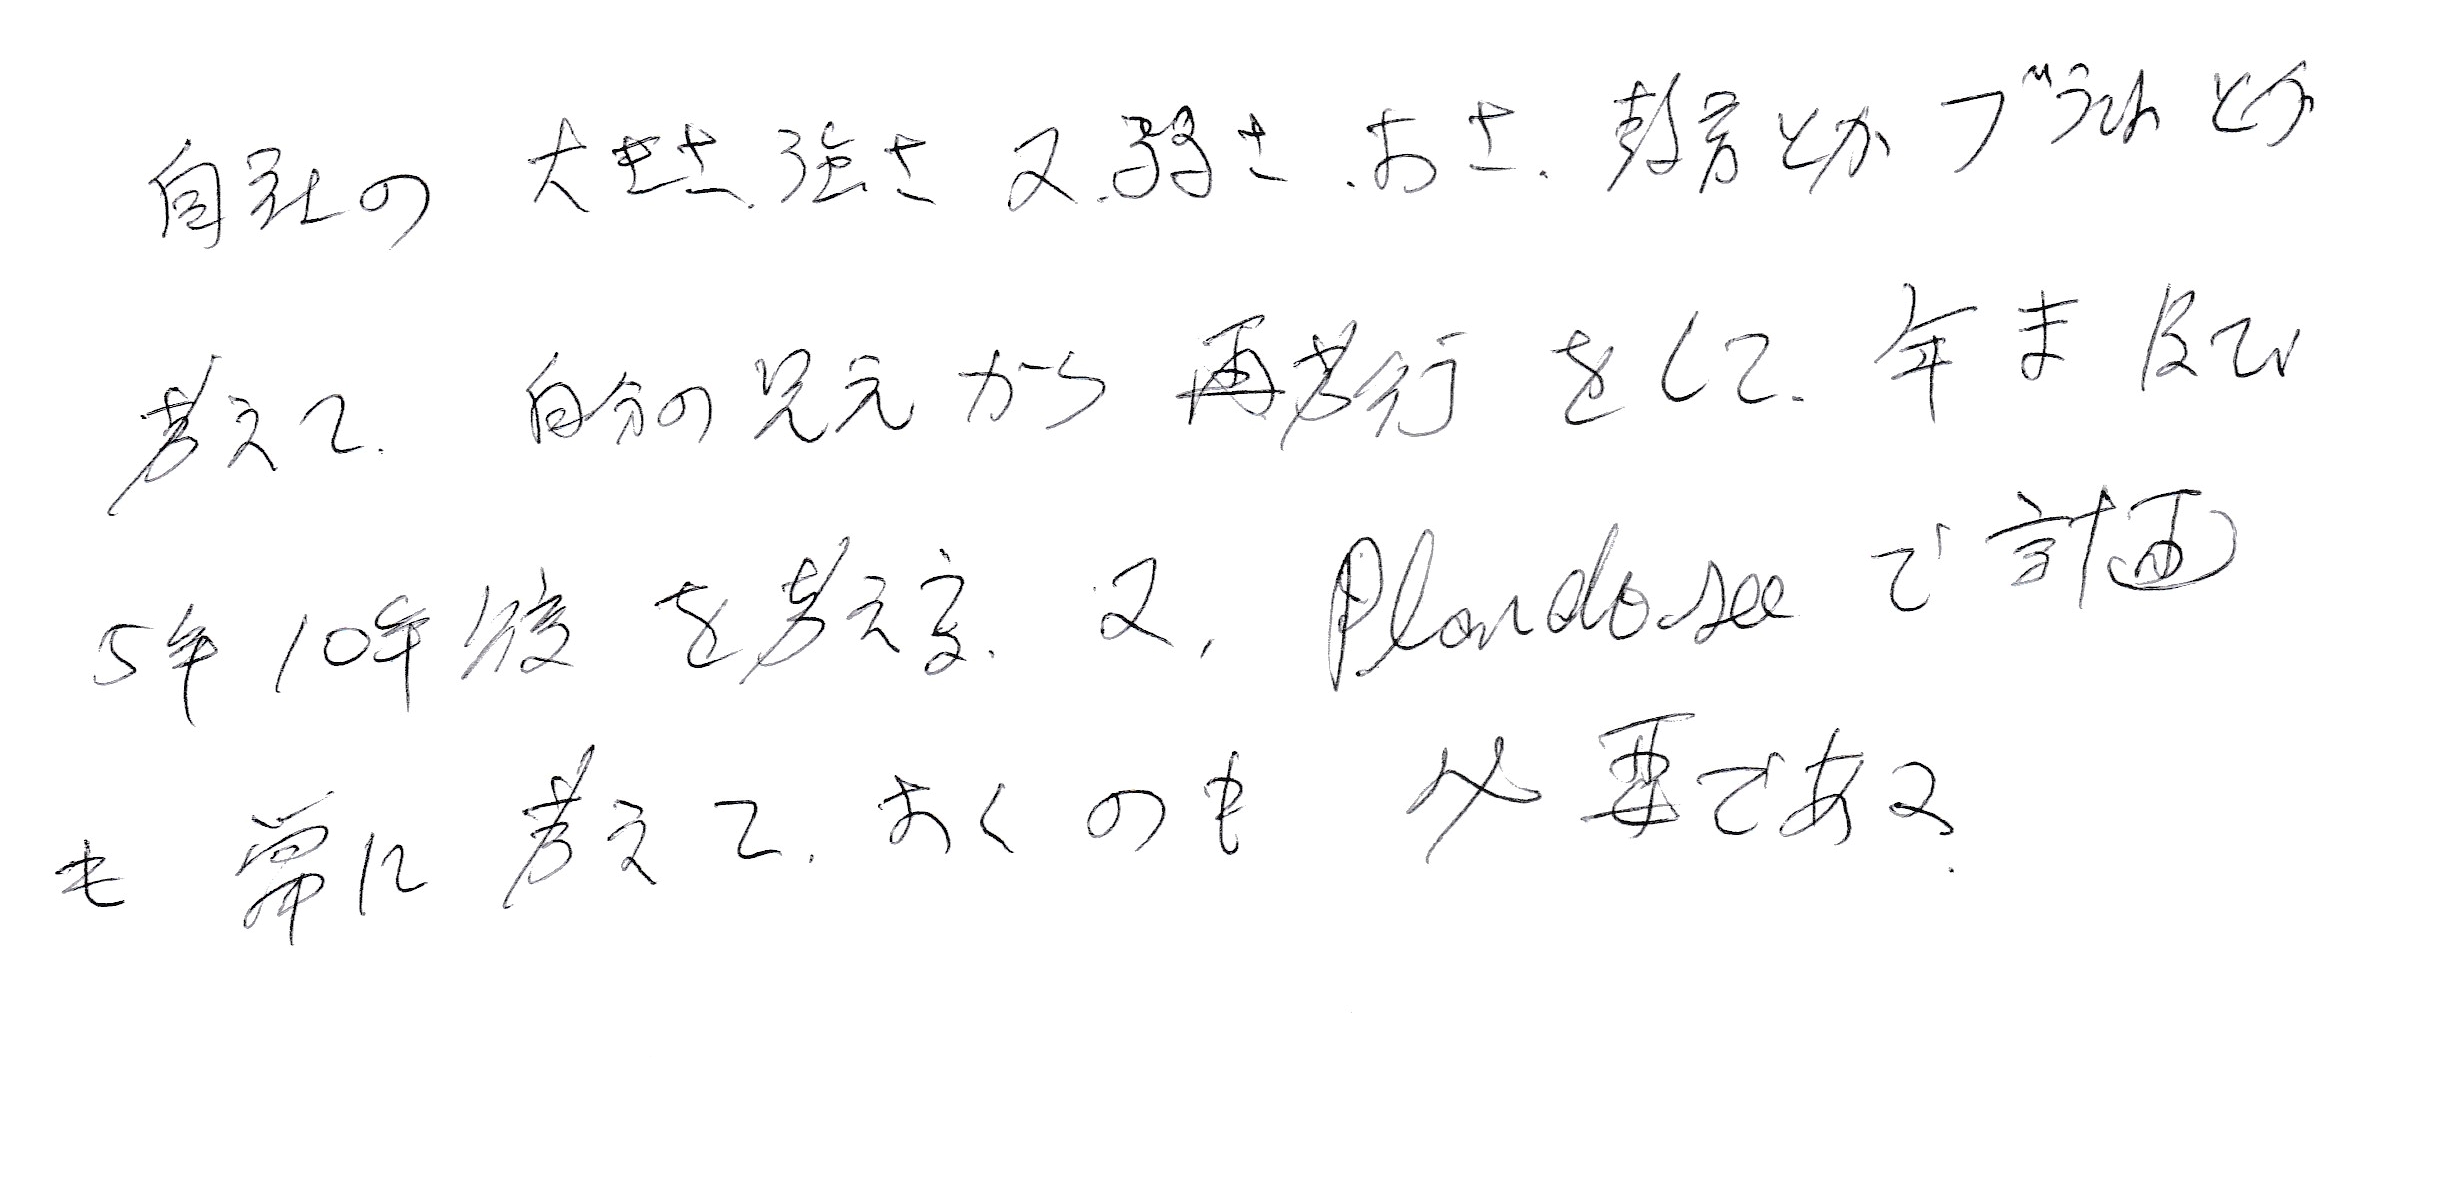 自社の 大きさ、強さ 又、弱さ、おさ、教育とか ブランドとか
考えて、自分の足元から 再考行 をして、年ま 及び
5年 10年後 を考える、又、Plan do see で 計画
も 常に 考えて、おくのも 必要である